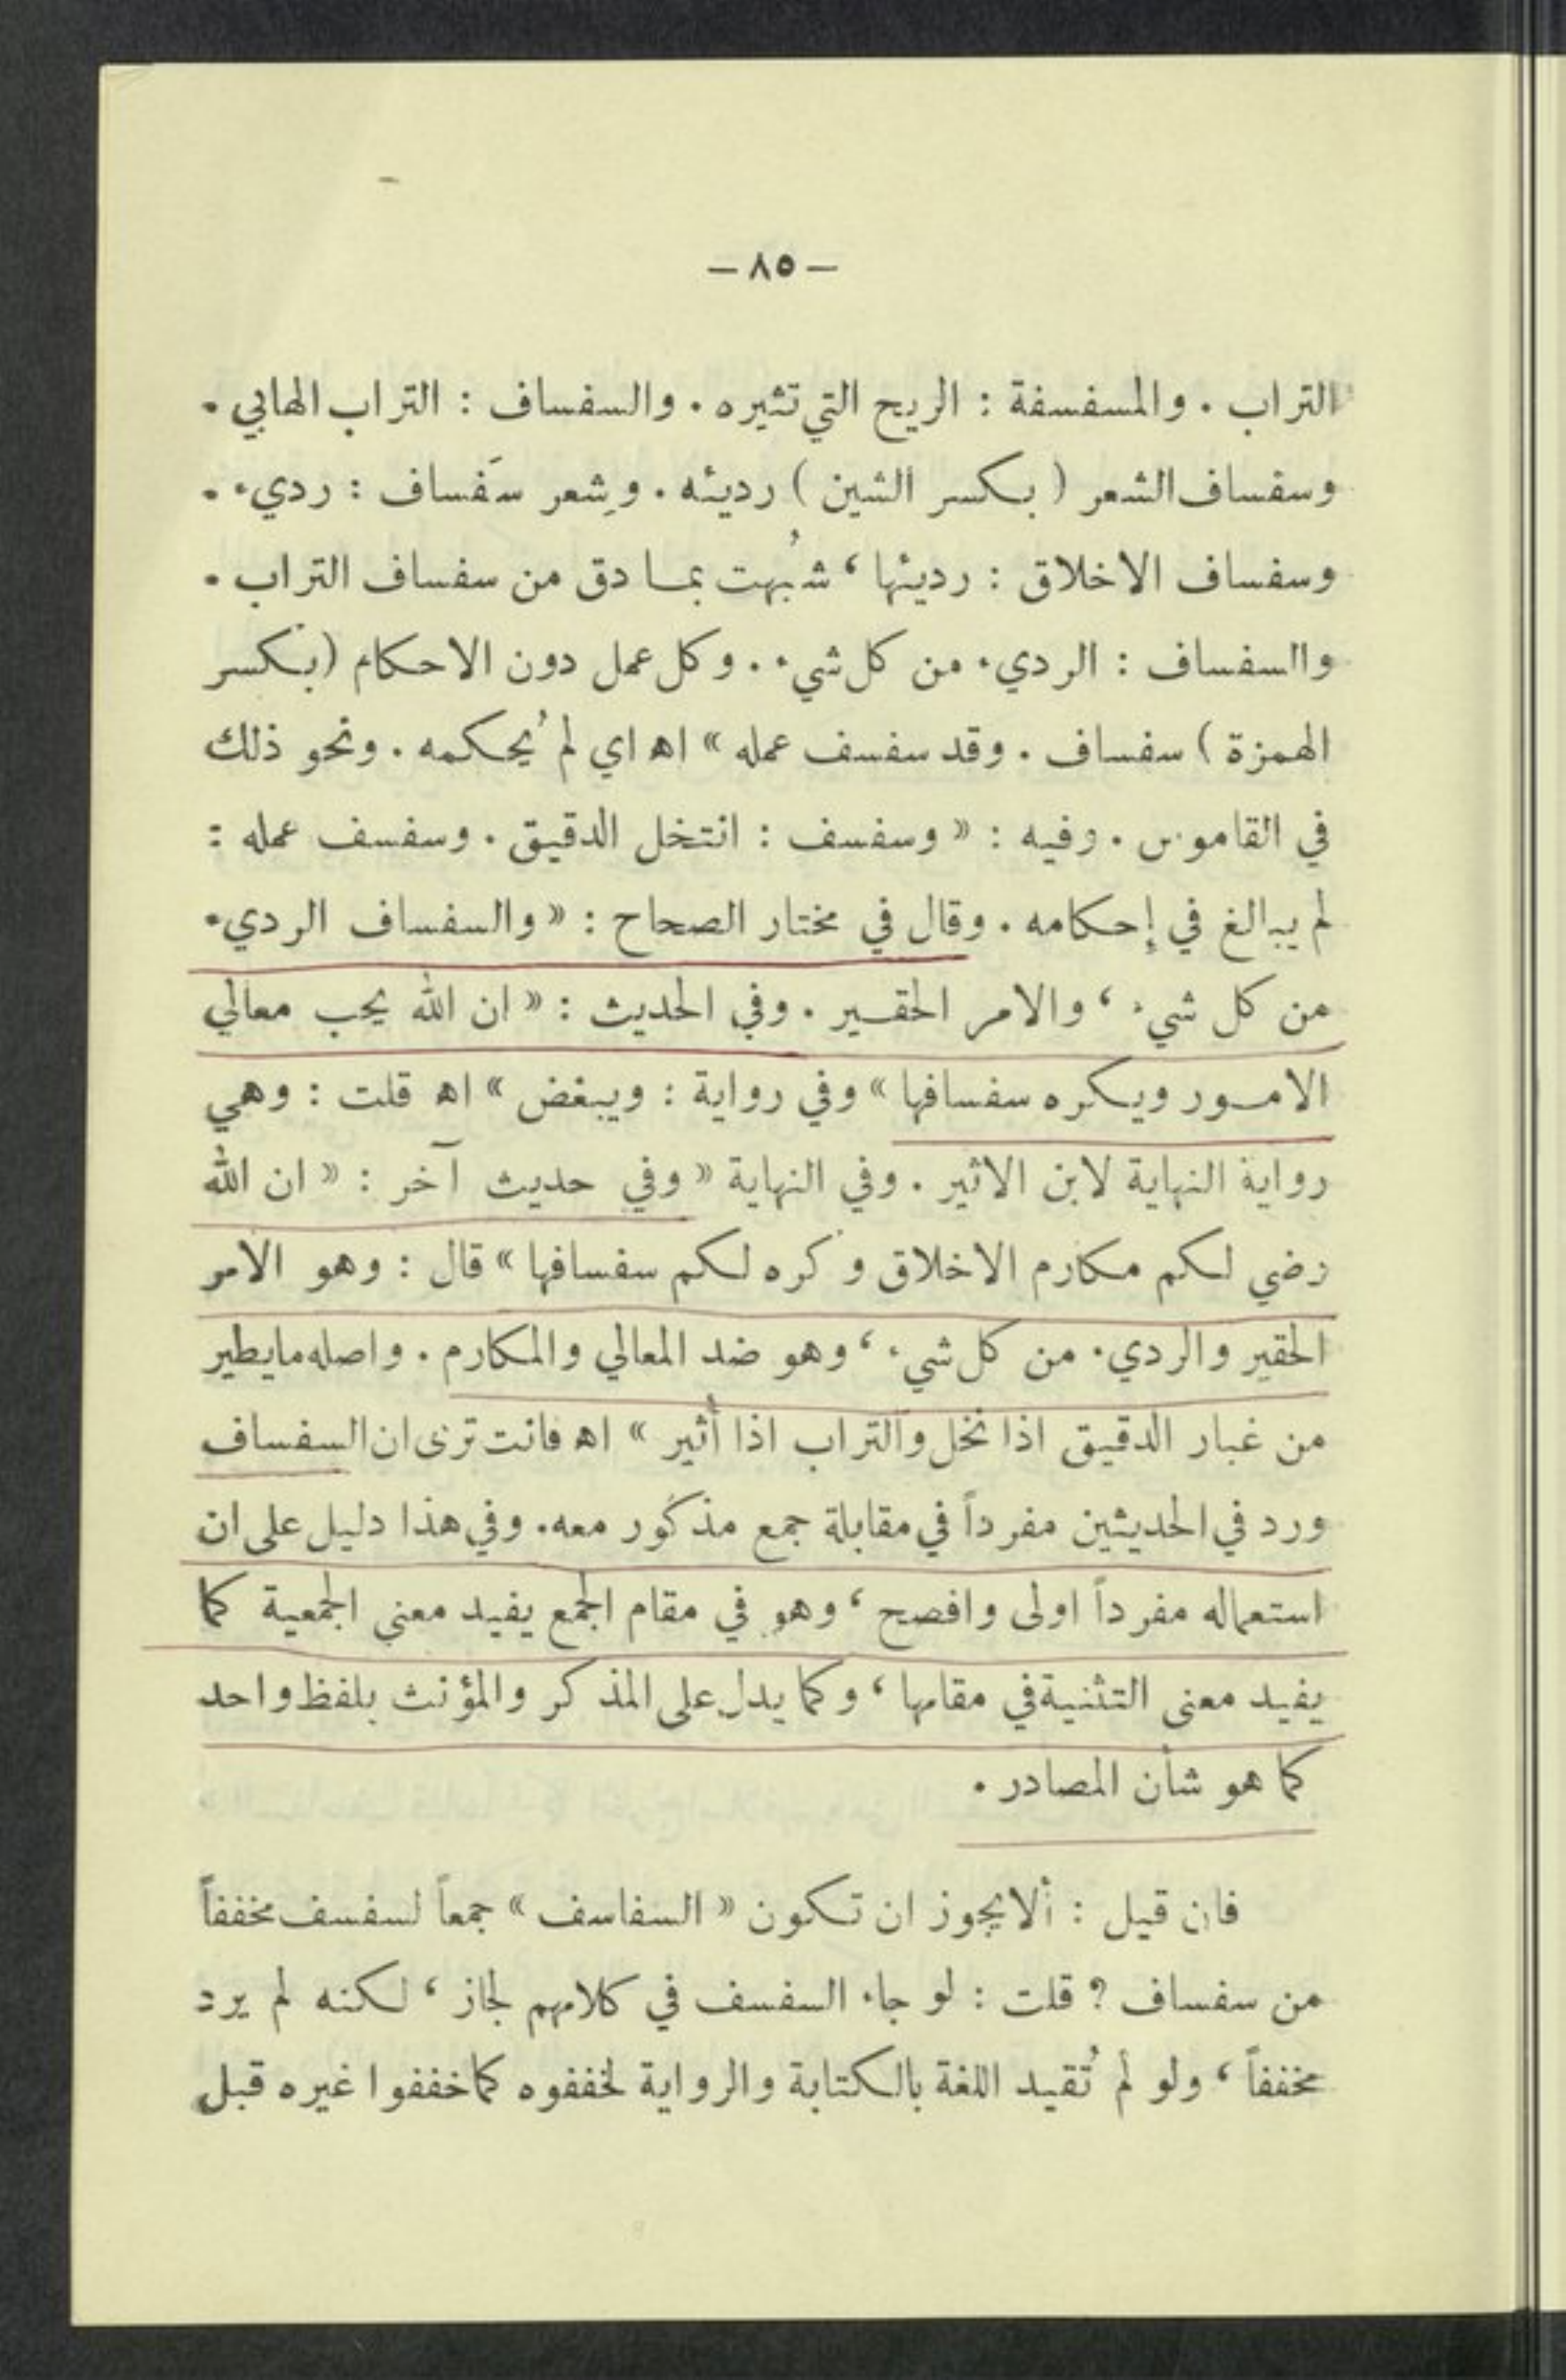 — ٨٥ —
التراب . والمسفسفة : الريح التي تثيره . والسفساف : التراب الهابي .
وسفساف الشعر ( بكسر الشين ) رديئه . وشِعر سَفساف : رديء .
وسفساف الاخلاق : رديئها ، شُبهت بما دق من سفساف التراب .
والسفساف : الرديء من كل شيء . وكل عمل دون الاحكام (بكسر
الهمزة ) سفساف . وقد سفسف عمله » اه اي لم يُحكمه . ونحو ذلك
في القاموس . وفيه : « وسفسف : انتخل الدقيق . وسفسف عمله :
لم يبالغ في إحكامه . وقال في مختار الصحاح : « والسفساف الرديء
من كل شيء ، والامر الحقير . وفي الحديث : « ان الله يحب معالي
الامور ويكره سفسافها » وفي رواية : ويبغض » اه قلت : وهي
رواية النهاية لابن الاثير . وفي النهاية « وفي حديث آخر : « ان الله
رضي لكم مكارم الاخلاق وكره لكم سفسافها » قال : وهو الامر
الحقير والرديء من كل شيء ، وهو ضد المعالي والمكارم . واصله ما يطير
من غبار الدقيق اذا نخل والتراب اذا أثير » اه فانت ترى ان السفساف
ورد في الحديثين مفرداً في مقابلة جمع مذكور معه . وفي هذا دليل على ان
استعماله مفرداً اولى وافصح ، وهو في مقام الجمع يفيد معنى الجمعية كما
يفيد معنى التثنية في مقامها ، وكما يدل على المذكر والمؤنث بلفظ واحد
كما هو شأن المصادر .
فان قيل : ألا يجوز ان تكون « السفاسف » جمعاً لسفسف مخففاً
من سفساف ؟ قلت : لو جاء السفسف في كلامهم لجاز ، لكنه لم يرد
مخففاً ، ولو لم تُقيد اللغة بالكتابة والرواية لخففوه كما خففوا غيره قبل